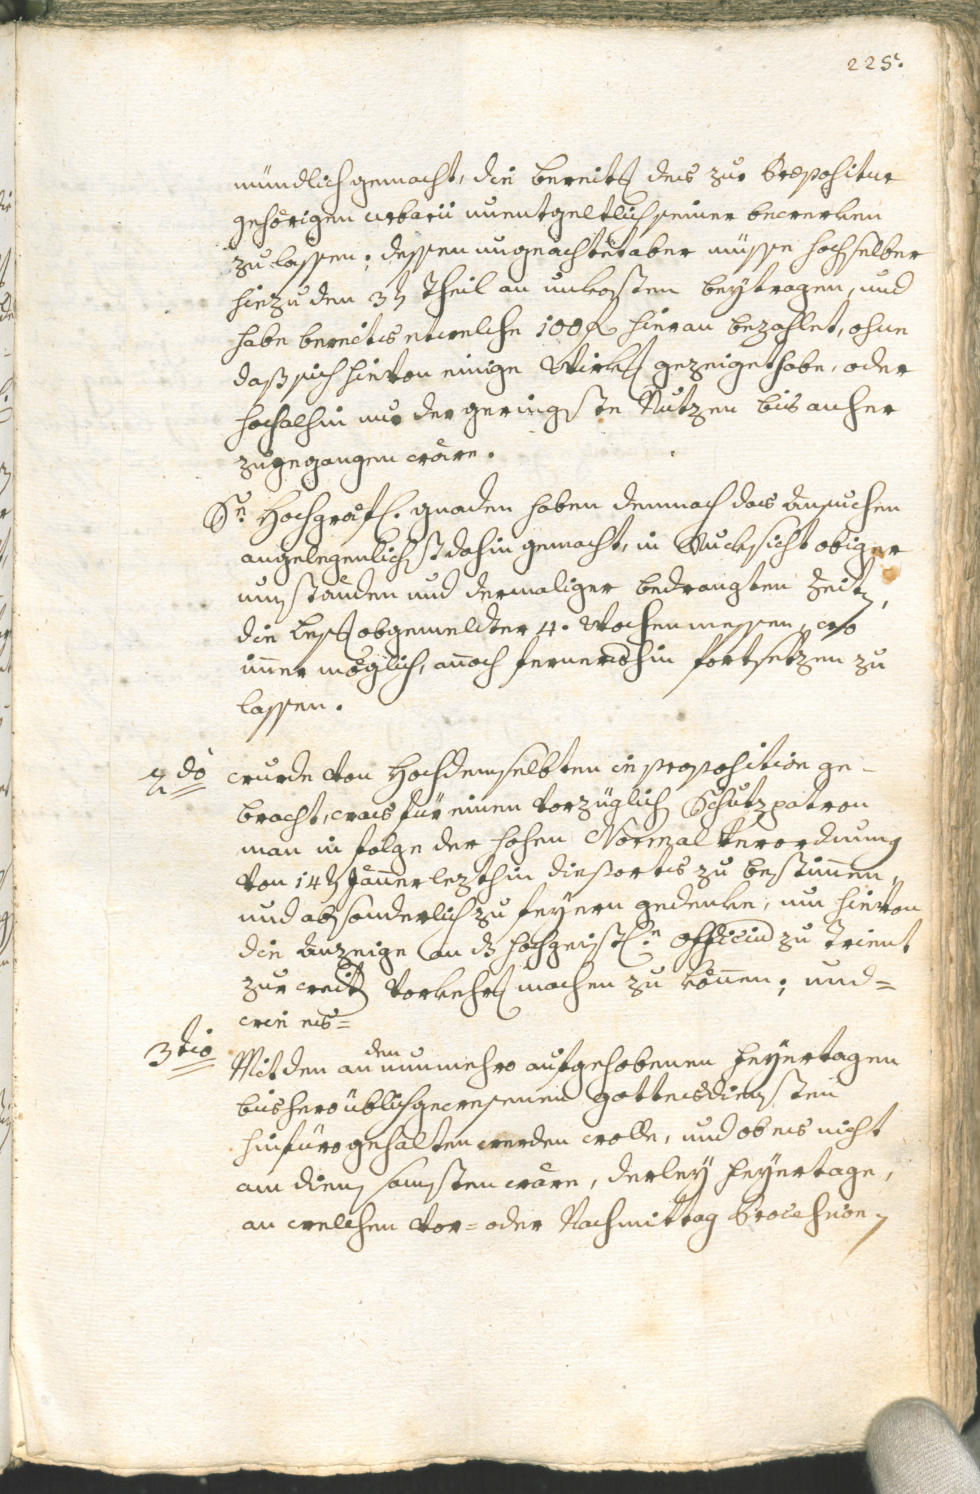 225.
mündlich gemacht, die bereits des zur Præpositur
gehörigen urbarii unentgeltlich seiner bewerken
zu lassen; dessen ungeachtet aber müsse hochselber
hiezu den 3t. Theil an unkosten beytragen, und
habe bereits etwelche 100 f. hieran bezahlet, ohne
daß sich hievon einige Wirk. gezeiget habe, oder
hochalhin nur der geringste Nutzen bis anher
zugegangen wäre.
Sr. Hochgräfl. gnaden haben demnach das Ansuchen
angelegenlichst dahin gemacht, in Rucksicht obiger
umständen und dermaliger bedrangten Zeit.,
die Les. obgemeldter 4. Wochenmessen, wo
im̅er möglich, an̅och fernershin fortsetzen zu
lassen.
2do
wurde von Hochdemselbten in proposition ge-
bracht, was für einen vorzüglich. Schutzpatron
man in folge der hohen Normal Verordnung
von 14t. Jän̅er lezthin diesorts zu bestim̅en,
und absonderlich zu feyern gedenke, um hievon
die Anzeige an d. hochgeistl.e officium zu Trient
zur weit. Vorkehr. machen zu kön̅en; und=
wie es=
3tio
Mit den an den nunmehro aufgehobenen Feyertagen
bishero üblich gewesenen gottesdiensten
hinfüro gehalten werden wolle, und ob es nicht
am diensamsten wäre, derley Feyertage,
an welchen Vor= oder Nachmittag Processionen